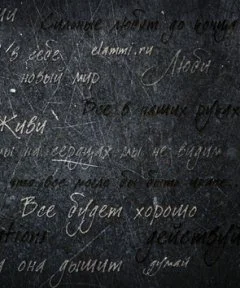 Сильные любят до конца
в себе elammi.ru
новый мир
Люби
Все в наших руках
Живи
мы на сердцах мы не видим
что все могло бы быть иначе...
Все будет хорошо
действуй
а она дышит думай